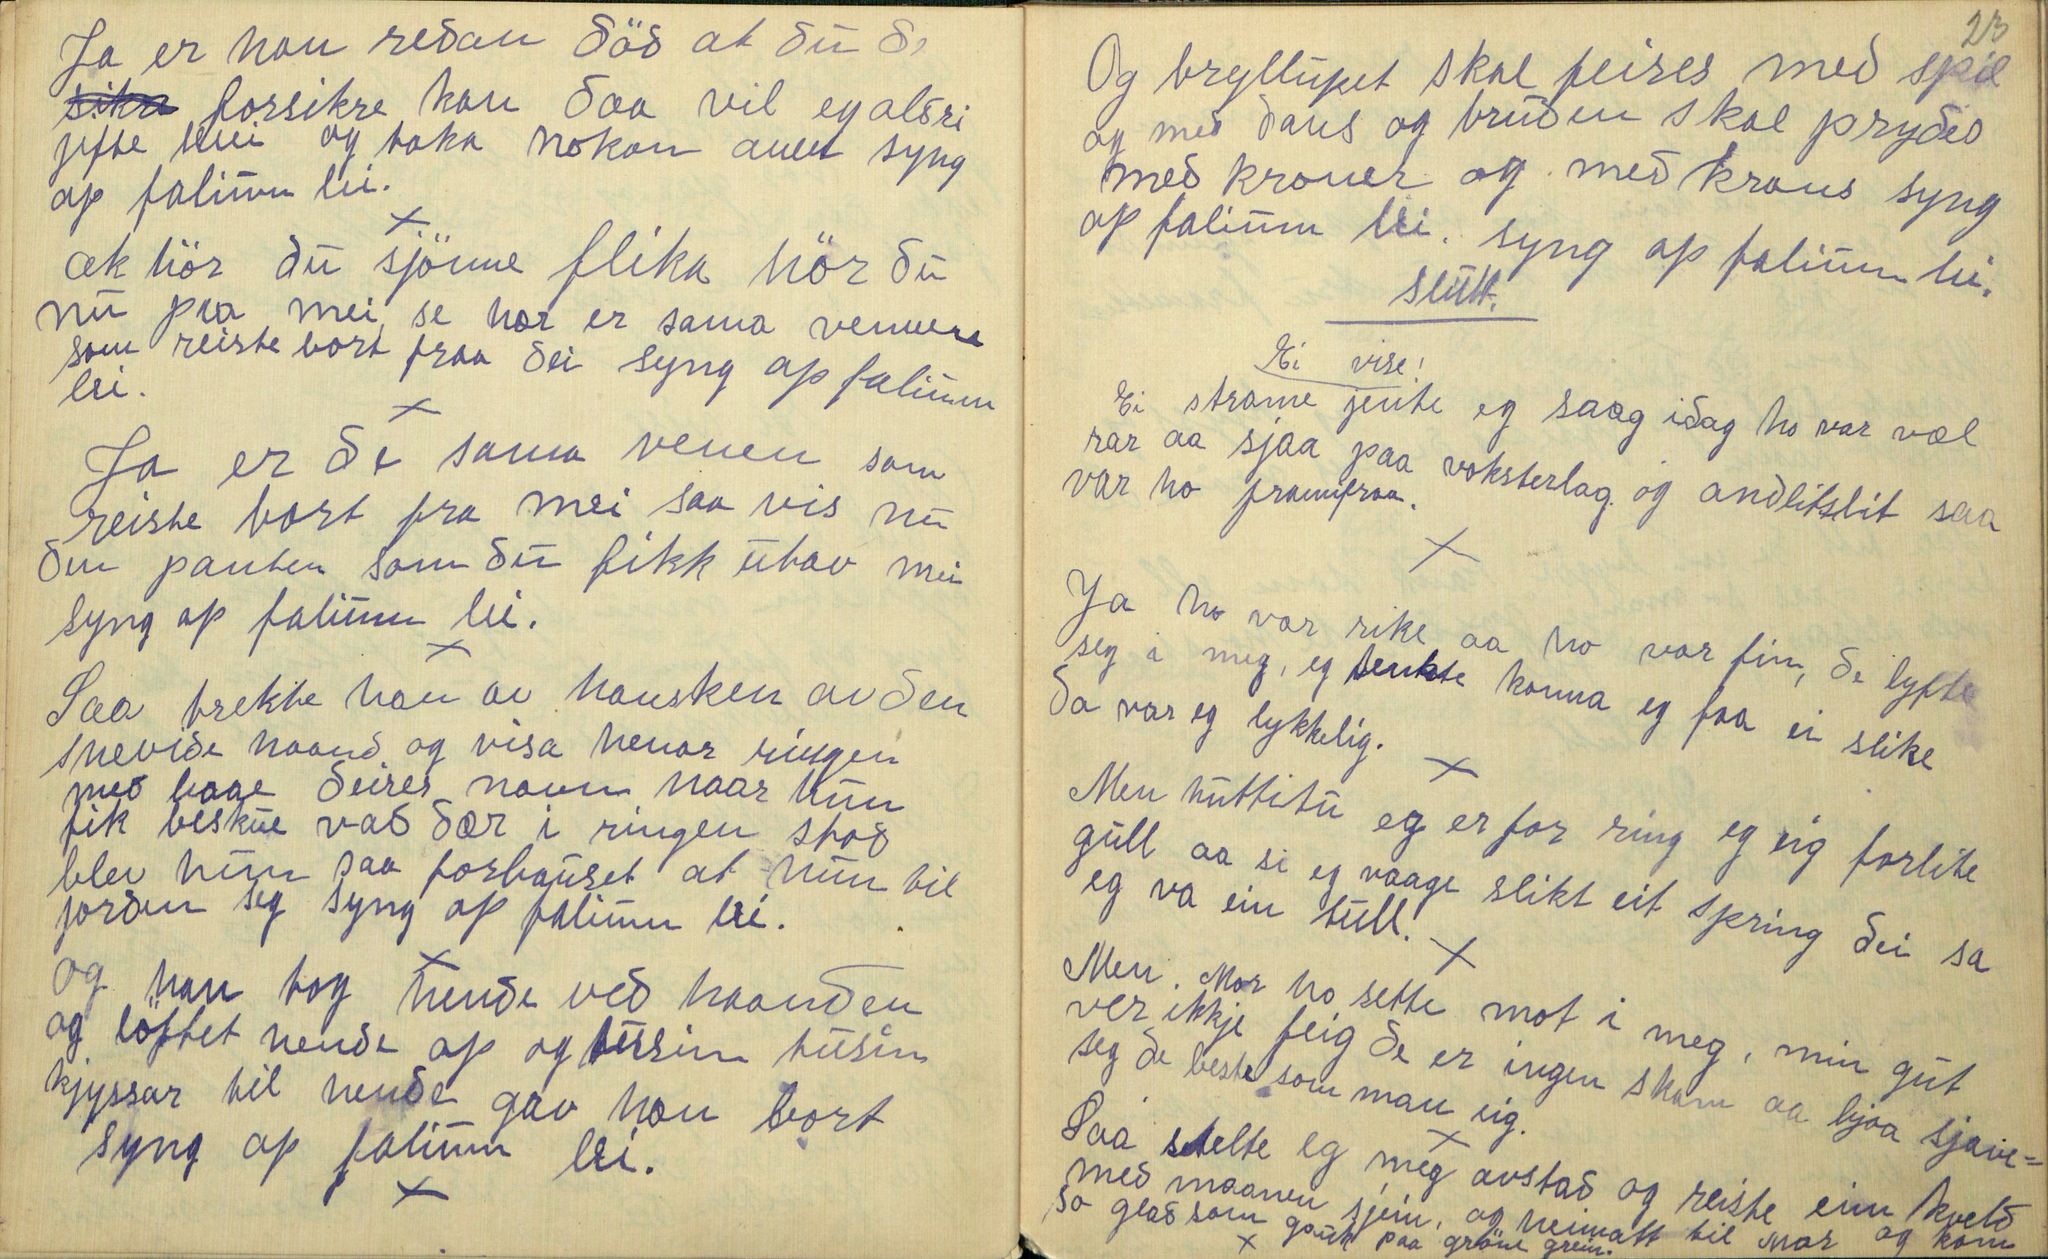 Ja er han redan död at du de
sikre forsikre kan daa vil eg aldri
jifte mei og taka nokon anen syng
op falium lei.
x
ak hör du sjönne flika hör du
nu paa mei, se her er sama vennene
som reiste bort fraa dei syng op falium
lei.
x
Ja er de sama venen som
reiste bort fra mei saa vis nu
den panten som du fikk utav mei
syng op falium lei.
x
Saa trekte han av hansken av den
snevide haand og visa henar ringen
med baae deires navn naar hun
fik beskue vad dær i ringen stod
blev hun saa forbauset at hun til
jorden seg syng op falium lei.
x
Og han tog hende ved haanden
og löftet hende op og tusin tusin
kjyssar til hende gav han bort
syng op falium lei.
x
23
Og bryllupet skal feires med spil
og med dans og bruden skal prydes
med kroner og med krans syng
op falium lei. syng op falium lei.
slutt.
Ei vise!
Ei strame jente eg saag idag ho var væl
rar aa sjaa paa voksterlag og andlitslit saa
var ho framifraa.
x
Ja ho var rike aa ho var fin, de lyfte
seg i meg, eg tenkte kunna eg faa ei slike
da var eg lykkelig.
x
Men huttitu eg er for ring eg eig forlite
gull aa si eg vaage slikt eit spring dei sa
eg va ein tull.
x
Men. Mor ho sette mot i meg, min gut
ver ikkje feig de er ingen skam aa bjoa sjave=
seg de beste som man eig.
x
Saa stelte eg meg avstad og reiste ein kveld
med maanen sjein, og heimatt til Mor og kom
so glad som gauk paa gröne grein.
x